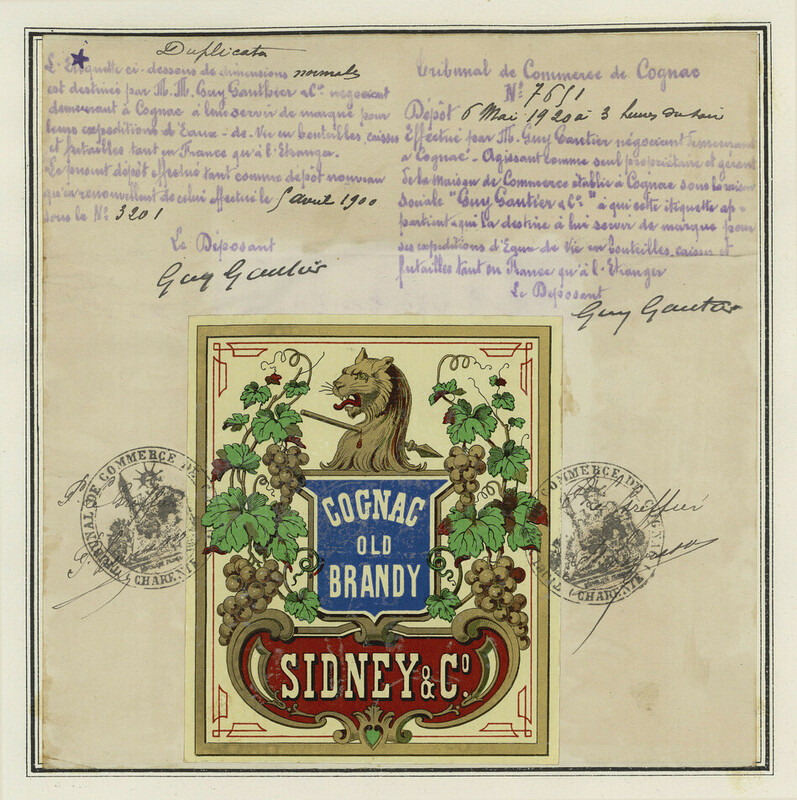 Duplicata
L'Etiquette ci-dessous de dimensions normales
est destinée par M.M. Guy Gauthier & Cº négociant
demeurant à Cognac à lui servir de marque pour
leurs expéditions d'Eaux-de-Vie en bouteilles, caisses
et futailles tant en France qu'à l'Etranger.
Le présent dépôt effectué tant comme dépôt nouveau
qu'en renouvellement de celui effectué le 5 avril 1900
sous le Nº 3201
Le Déposant
Guy Gautier
Tribunal de Commerce de Cognac
Nº 7651
Dépôt 6 Mai 1920 à 3 heures du soir
Effectué par M. Guy Gautier négociant demeurant
à Cognac. Agissant comme seul propriétaire et gérant
de la Maison de Commerce établie à Cognac sous la raison
sociale "Guy Gautier & Cº" à qui cette étiquette ap-
partient qui la destine à lui servir de marque pour
ses expéditions d'Eaux de Vie en bouteilles, caisses et
futailles tant en France qu'à l'Etranger
Le Déposant
Guy Gautier
TRIBUNAL DE COMMERCE DE
(CHARENTE)
COMMERCE DE COGNAC
(CHARENTE)
Le Greffier
COGNAC
OLD
BRANDY
SIDNEY & Cº.